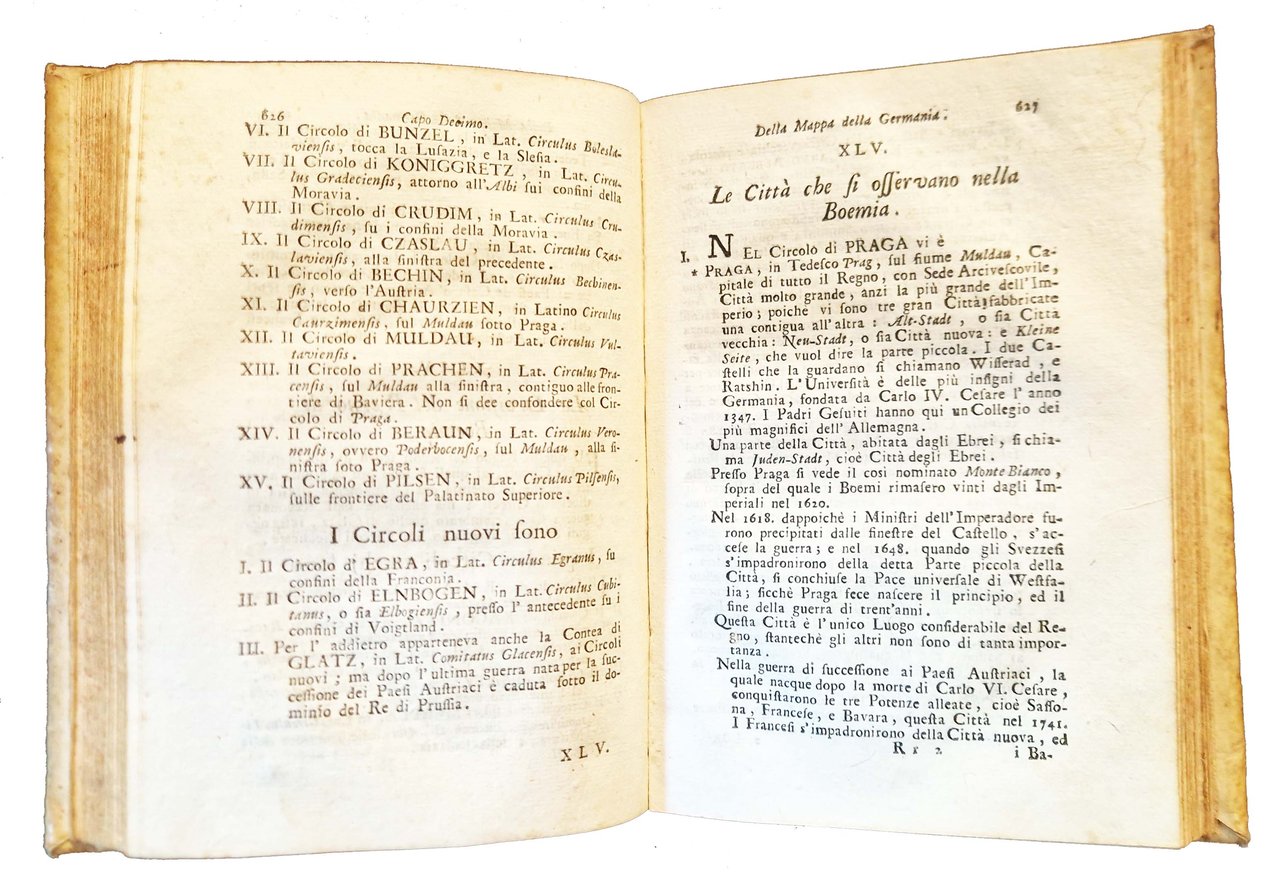 626
Capo Decimo.
VI. Il Circolo di BUNZEL, in Lat. Circulus Bolesla-
viensis, tocca la Lusazia, e la Slesia.
VII. Il Circolo di KONIGGRETZ, in Lat. Circu-
lus Gradeciensis, attorno all'Albi sui confini della
Moravia.
VIII. Il Circolo di CRUDIM, in Lat. Circulus Cru-
dimensis, su i confini della Moravia.
IX. Il Circolo di CZASLAU, in Lat. Circulus Czas-
laviensis, alla sinistra del precedente.
X. Il Circolo di BECHIN, in Lat. Circulus Bechinen-
sis, verso l'Austria.
XI. Il Circolo di CHAURZIEN, in Latino Circulus
Caurzimensis, sul Muldau sotto Praga.
XII. Il Circolo di MULDAU, in Lat. Circulus Vul-
taviensis.
XIII. Il Circolo di PRACHEN, in Lat. Circulus Pra-
censis, sul Muldau alla sinistra, contiguo alle fron-
tiere di Baviera. Non si dee confondere col Cir-
colo di Praga.
XIV. Il Circolo di BERAUN, in Lat. Circulus Vero-
nensis, ovvero Poderbocensis, sul Muldau, alla si-
nistra soto Praga.
XV. Il Circolo di PILSEN, in Lat. Circulus Pilsensis,
sulle frontiere del Palatinato Superiore.
I Circoli nuovi sono
I. Il Circolo d' EGRA, in Lat. Circulus Egranus, su
confini della Franconia.
II. Il Circolo di ELNBOGEN, in Lat. Circulus Cubi-
tanus, o sia Elbogiensis, presso l' antecedente su i
confini di Voigtland.
III. Per l' addietro apparteneva anche la Contea di
GLATZ, in Lat. Comitatus Glacensis, ai Circoli
nuovi; ma dopo l'ultima guerra nata per la suc-
cessione dei Paesi Austriaci è caduta sotto il do-
minio del Re di Prussia.
XLV.
Della Mappa della Germania.
627
XLV.
Le Città che si osservano nella
Boemia.
I. NEL Circolo di PRAGA vi è
* PRAGA, in Tedesco Prag, sul fiume Muldau, Ca-
pitale di tutto il Regno, con Sede Arcivescovile,
Città molto grande, anzi la più grande dell'Im-
perio; poichè vi sono tre gran Città fabbricate
una contigua all'altra: Alt-Stadt, o sia Città
vecchia: Neu-Stadt, o sia Città nuova: e Kleine
Seite, che vuol dire la parte piccola. I due Ca-
stelli che la guardano si chiamano Wisserad, e
Ratshin. L'Università è delle più insigni della
Germania, fondata da Carlo IV. Cesare l' anno
1347. I Padri Gesuiti hanno qui un Collegio dei
più magnifici dell' Allemagna.
Una parte della Città, abitata dagli Ebrei, si chia-
ma Juden-Stadt, cioè Città degli Ebrei.
Presso Praga si vede il così nominato Monte Bianco,
sopra del quale i Boemi rimasero vinti dagli Im-
periali nel 1620.
Nel 1618. dappoichè i Ministri dell'Imperadore fu-
rono precipitati dalle finestre del Castello, s'ac-
cese la guerra; e nel 1648. quando gli Svezzesi
s'impadronirono della detta Parte piccola della
Città, si conchiuse la Pace universale di Westfa-
lia; sicchè Praga fece nascere il principio, ed il
fine della guerra di trent'anni.
Questa Città è l'unico Luogo considerabile del Re-
gno, stantechè gli altri non sono di tanta impor-
tanza.
Nella guerra di successione ai Paesi Austriaci, la
quale nacque dopo la morte di Carlo VI. Cesare,
conquistarono le tre Potenze alleate, cioè Sasso-
na, Francese, e Bavara, questa Città nel 1741.
I Francesi s'impadronirono della Città nuova, ed
Rr 2
i Ba-